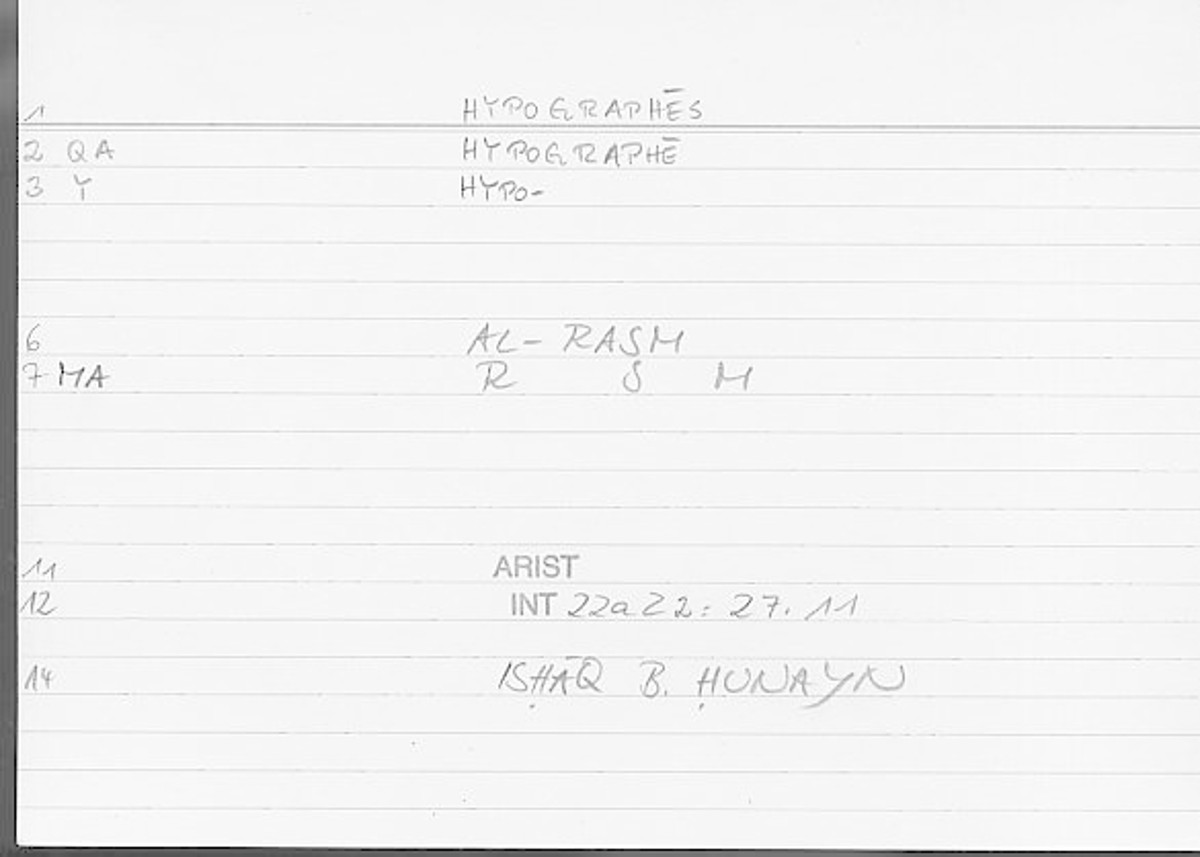 1 HYPOGRAPHĒS
2 QA HYPOGRAPHĒ
3 Y HYPO-
6 AL-RASM
7 MA R S M
11 ARIST
12 INT 22a22: 27.11
14 ISḤĀQ B. ḤUNAYN